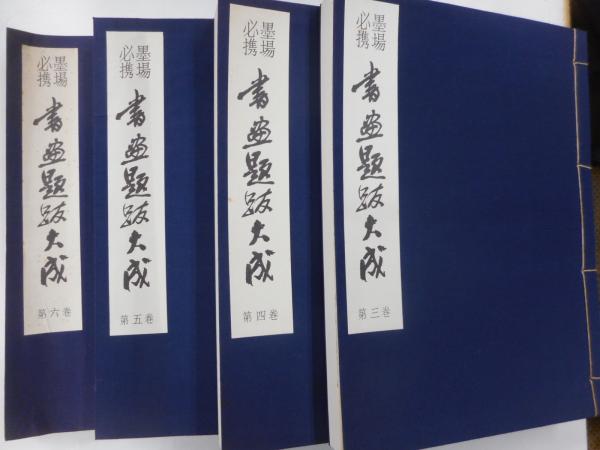 墨場
必携
書画題跋大成
第六巻
墨場
必携
書画題跋大成
第五巻
墨場
必携
書画題跋大成
第四巻
墨場
必携
書画題跋大成
第三巻